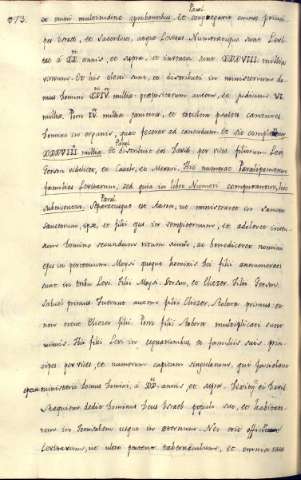 973.
et omni multitudine
Paral
Et congregavit omnes princi-
pes Israel, et Sacerdotes, atque Levitas. Numeratique sunt Levi-
tae a XX. annis, et supra, et inventa sunt XXXVIII. millia
virorum. Ex his electi sunt, et distributi in ministerium do-
mus Domini XXIV. millia: praepositorum autem, et judicum VI.
millia. Porro IV. millia janitores, et totidem psaltae canentes
Domino in organis, quae fecerat ad canendum. Et sic complentur
XXXVIII. millia.
Paral
Et distribuit eos David per vices filiorum Levi
Gerson videlicet, et Caath, et Merari. Hic numerat Paralipomenon
familias Levitarum, sed quia in libro Numeri computantur, hic
Paral
Separatusque est Aaron, ut ministraret in sancto
sanctorum, ipse, et filii ejus in sempiternum, et adoleret incen-
sum Domino secundum ritum suum, ac benediceret nomini
ejus in perpetuum. Moysi quoque hominis Dei filii annumerati
sunt in tribu Levi. Filii Moysi Gersom, et Eliezer. Filii Gersom:
Subuel primus. Fuerunt autem filii Eliezer, Rohobia primus: et
non erant Eliezer filii. Porro filii Rohobia multiplicati sunt
nimis. Hi filii Levi in cognationibus, et familiis suis, prin-
cipes per vices, et numerum capitum singulorum, qui faciebant
opera ministerii domus Domini, a XX. annis, et supra. Dixit enim David
Requiem dedit Dominus Deus Israel populo suo, et habitatio-
nem in Jerusalem usque in aeternum. Nec erit officium
Levitarum, ut ultra portent tabernaculum, et omnia vasa